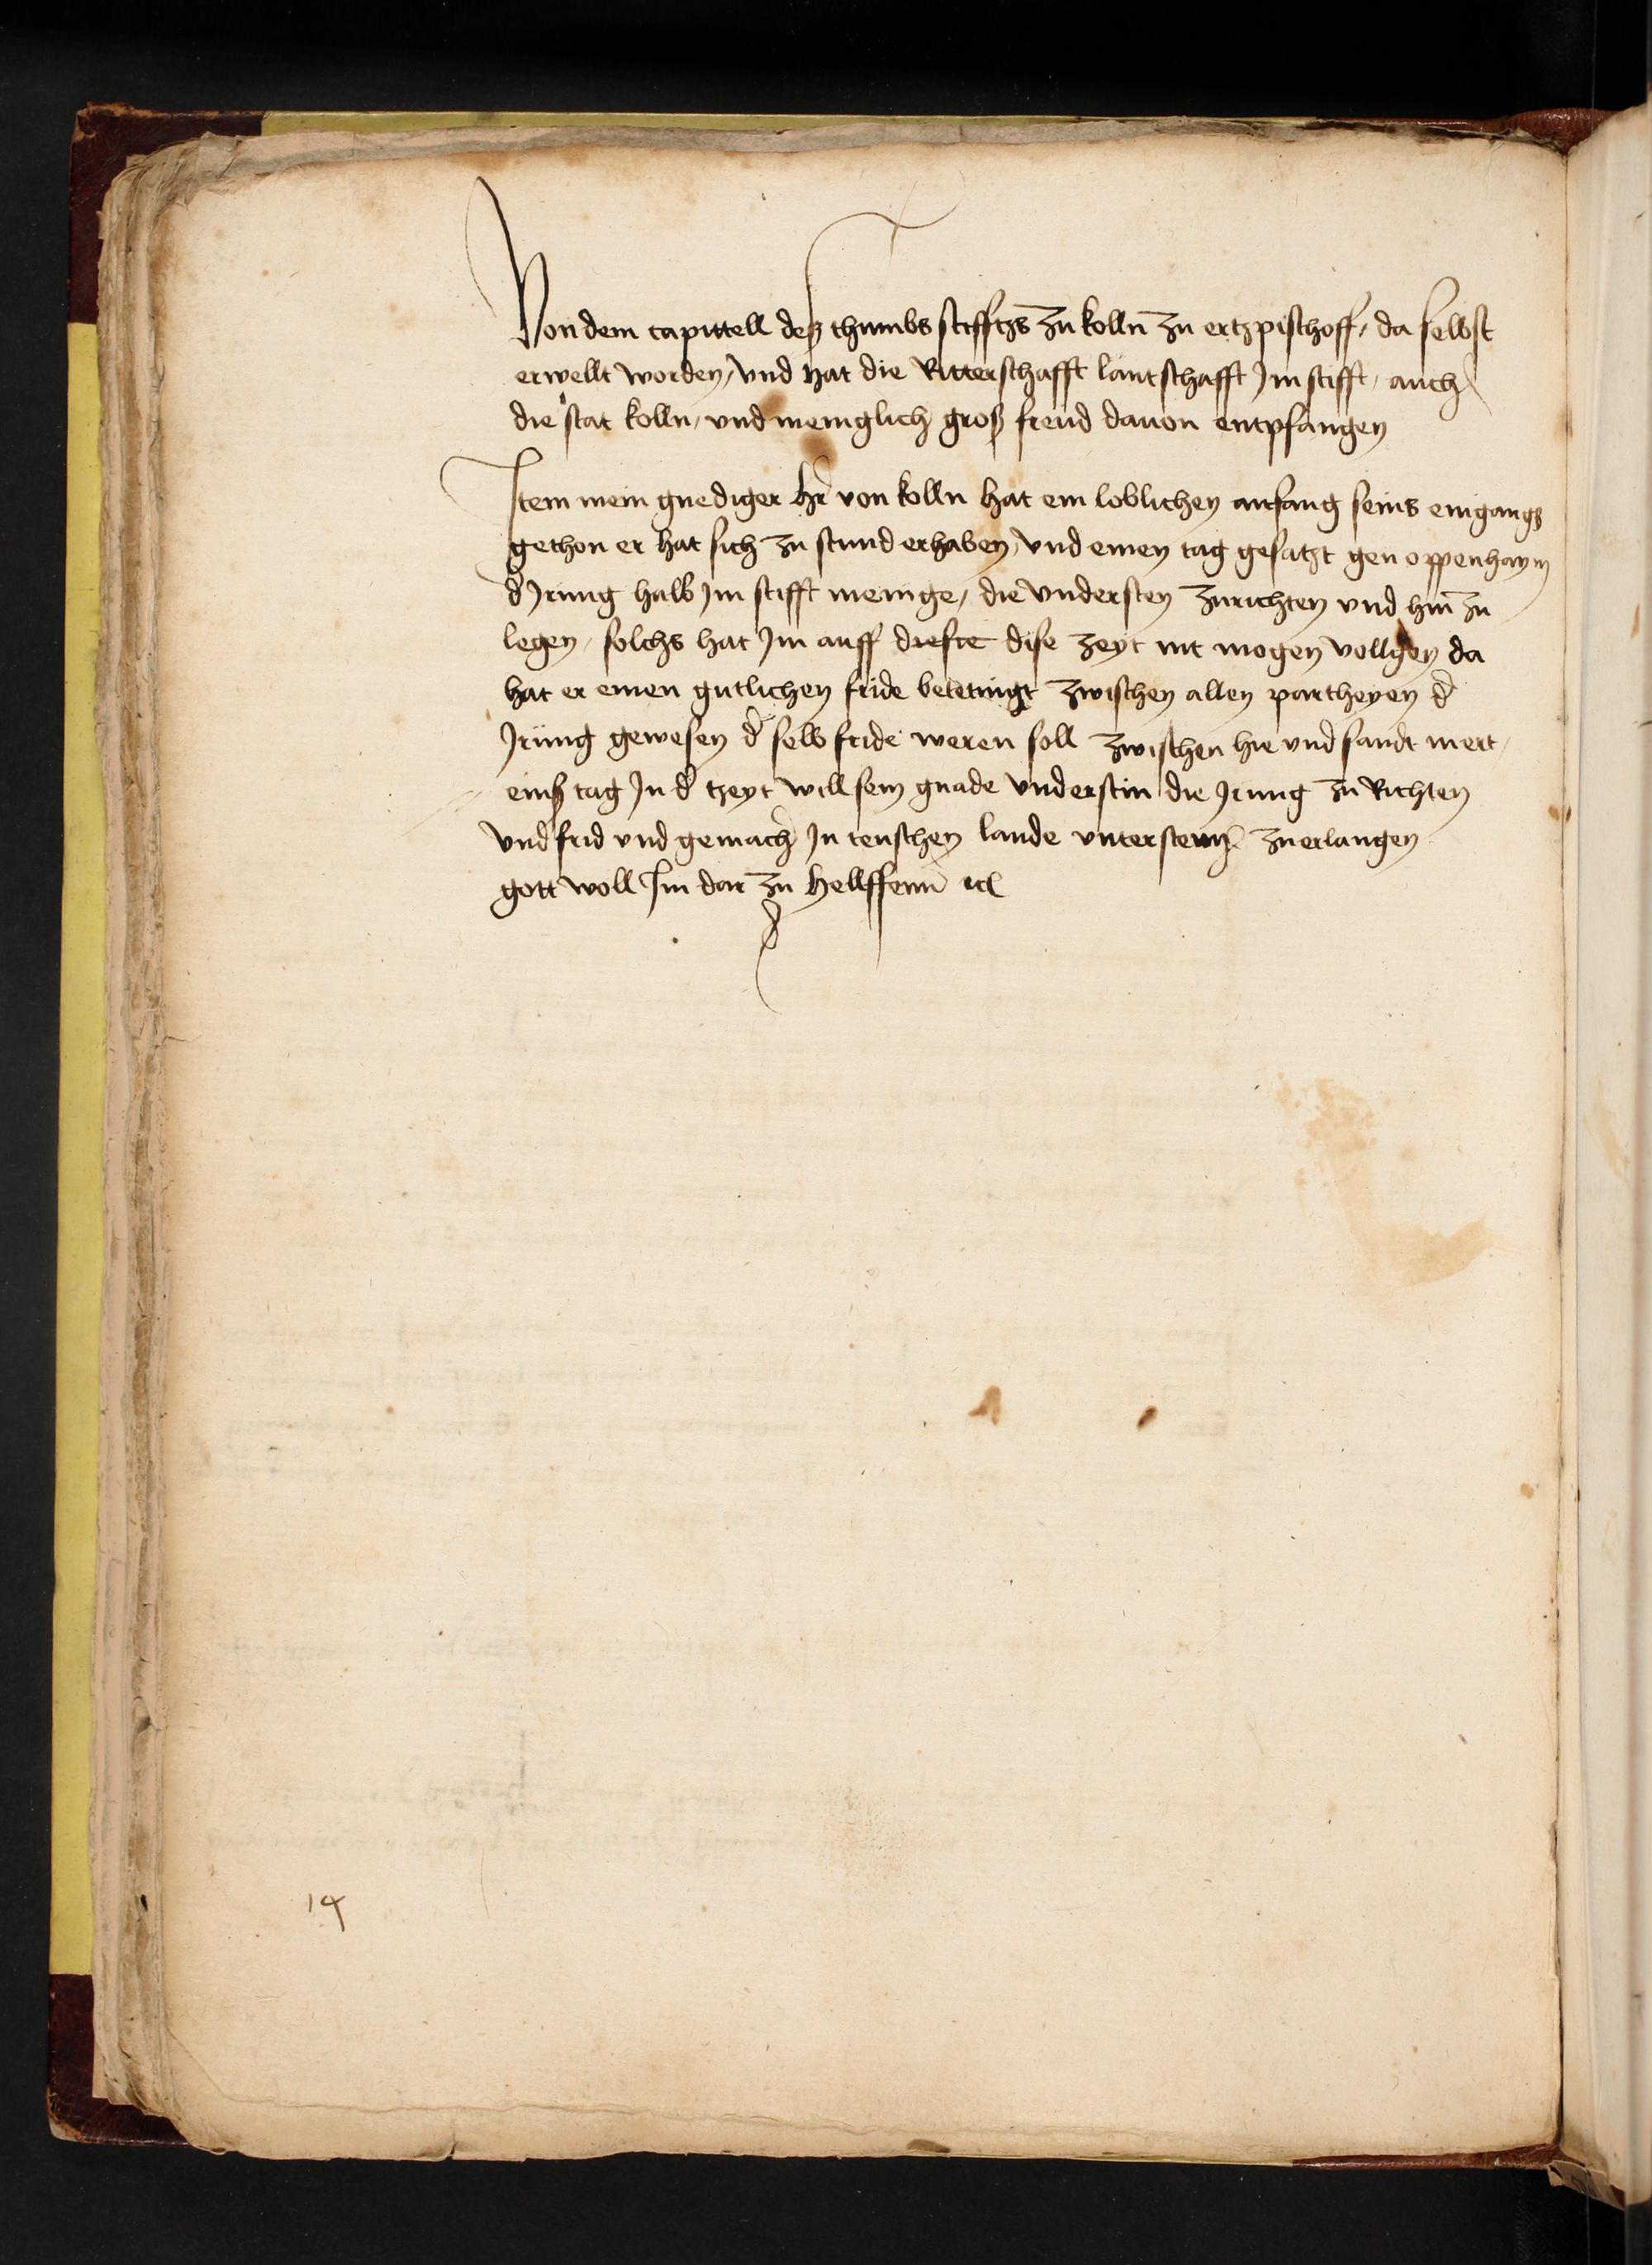 Von dem capittell deß thumbs stiffths zu kolln̄ zu ertzpischoff, da selbst
erwellt worden, vnd hat die Ritterschafft lantschafft Jm stifft, auch
die stat kolln, vnd meniglich groß freud dauon entpfangen
Item mein gnediger hr̄ von kolln hat ein loblichen anfang seins eingangß
gethon er hat sich zu stund erhaben, vnd einen tag gesatzt gen oppenhaym
d̄ Jrung halb Jm stifft meinge, die vndersten zurichten vnd hin̄ zu
legen, solchs hat Jm auff dise zeyt nit mogen vollgen da
hat er einen gutlichen fride beteringt zwischen allen partheyen d̄
Jrung gewesen d̄ selb fride weren soll zwischen hie vnd sandt mert,
einß tag Jn d̄ tzeyt will sein gnade vnderstin die Jrung zu Richten
vnd frid vnd gemach Jn teuschen lande vntersteim̄ zuerlangen
gott woll Im dar zu hellffenn̄ ꝛc
14